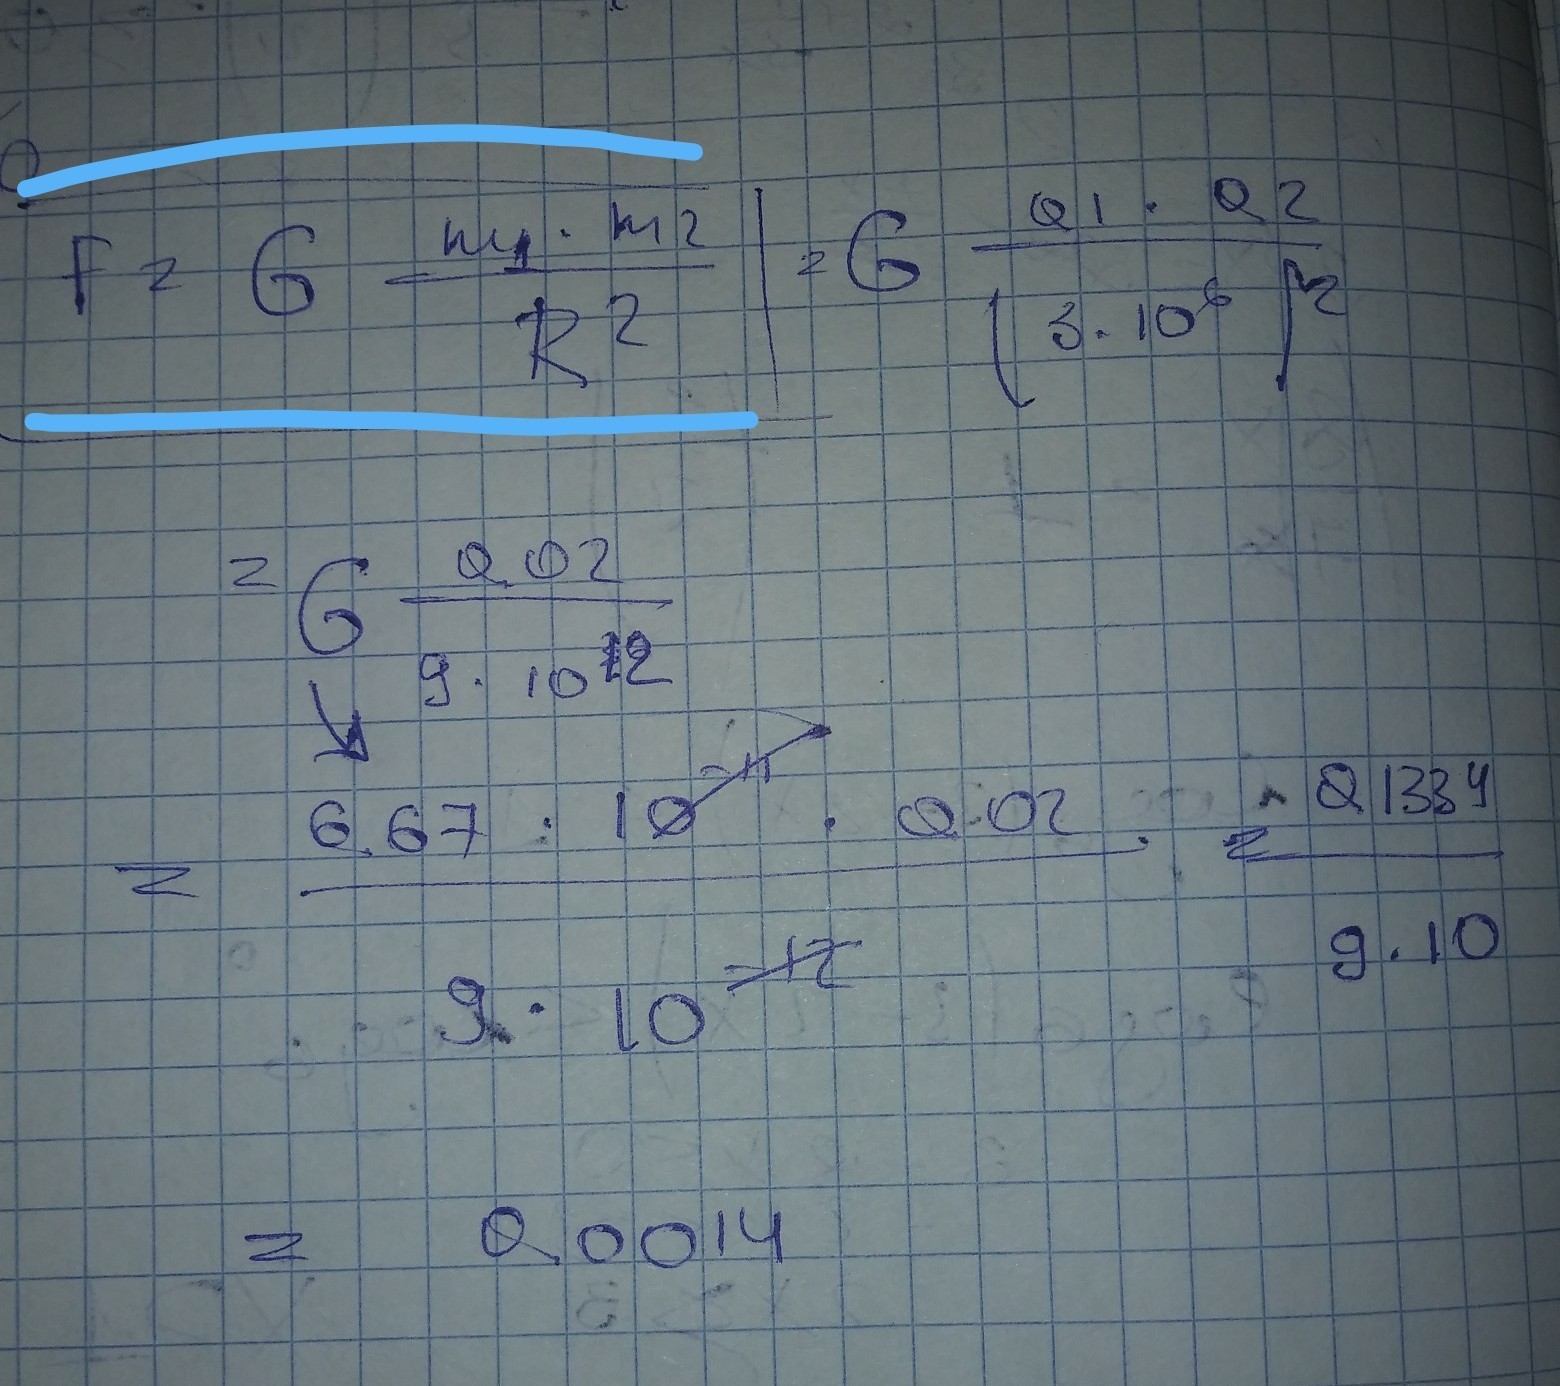 F = G m1 · m2 / R² | = G 0.1 · 0.2 / (3 · 10⁶)²
= G 0.02 / 9 · 10¹²
= 6.67 · 10⁻¹¹ · 0.02 / 9 · 10⁻¹² = 0.1334 / 9 · 10
= 0.0014